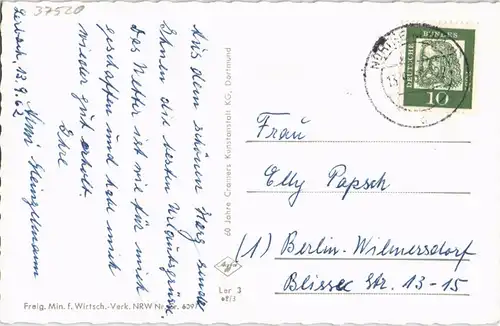 37520
Lerbach, 13.9.62
Aus dem schönen Harz sende
Ihnen die besten Urlaubsgrüße.
Das Wetter ist wie für mich
geschaffen und habe mich
wieder gut erholt.
Ihre
60 Jahre Cramers Kunstanstalt KG., Dortmund
DEUTSCHE BUNDESPOST
10
Frau
Elly Papsch
(1) Berlin-Wilmersdorf
Blisse Str. 13-15
Ler 3
Freig. Min. f. Wirtsch.-Verk. NRW